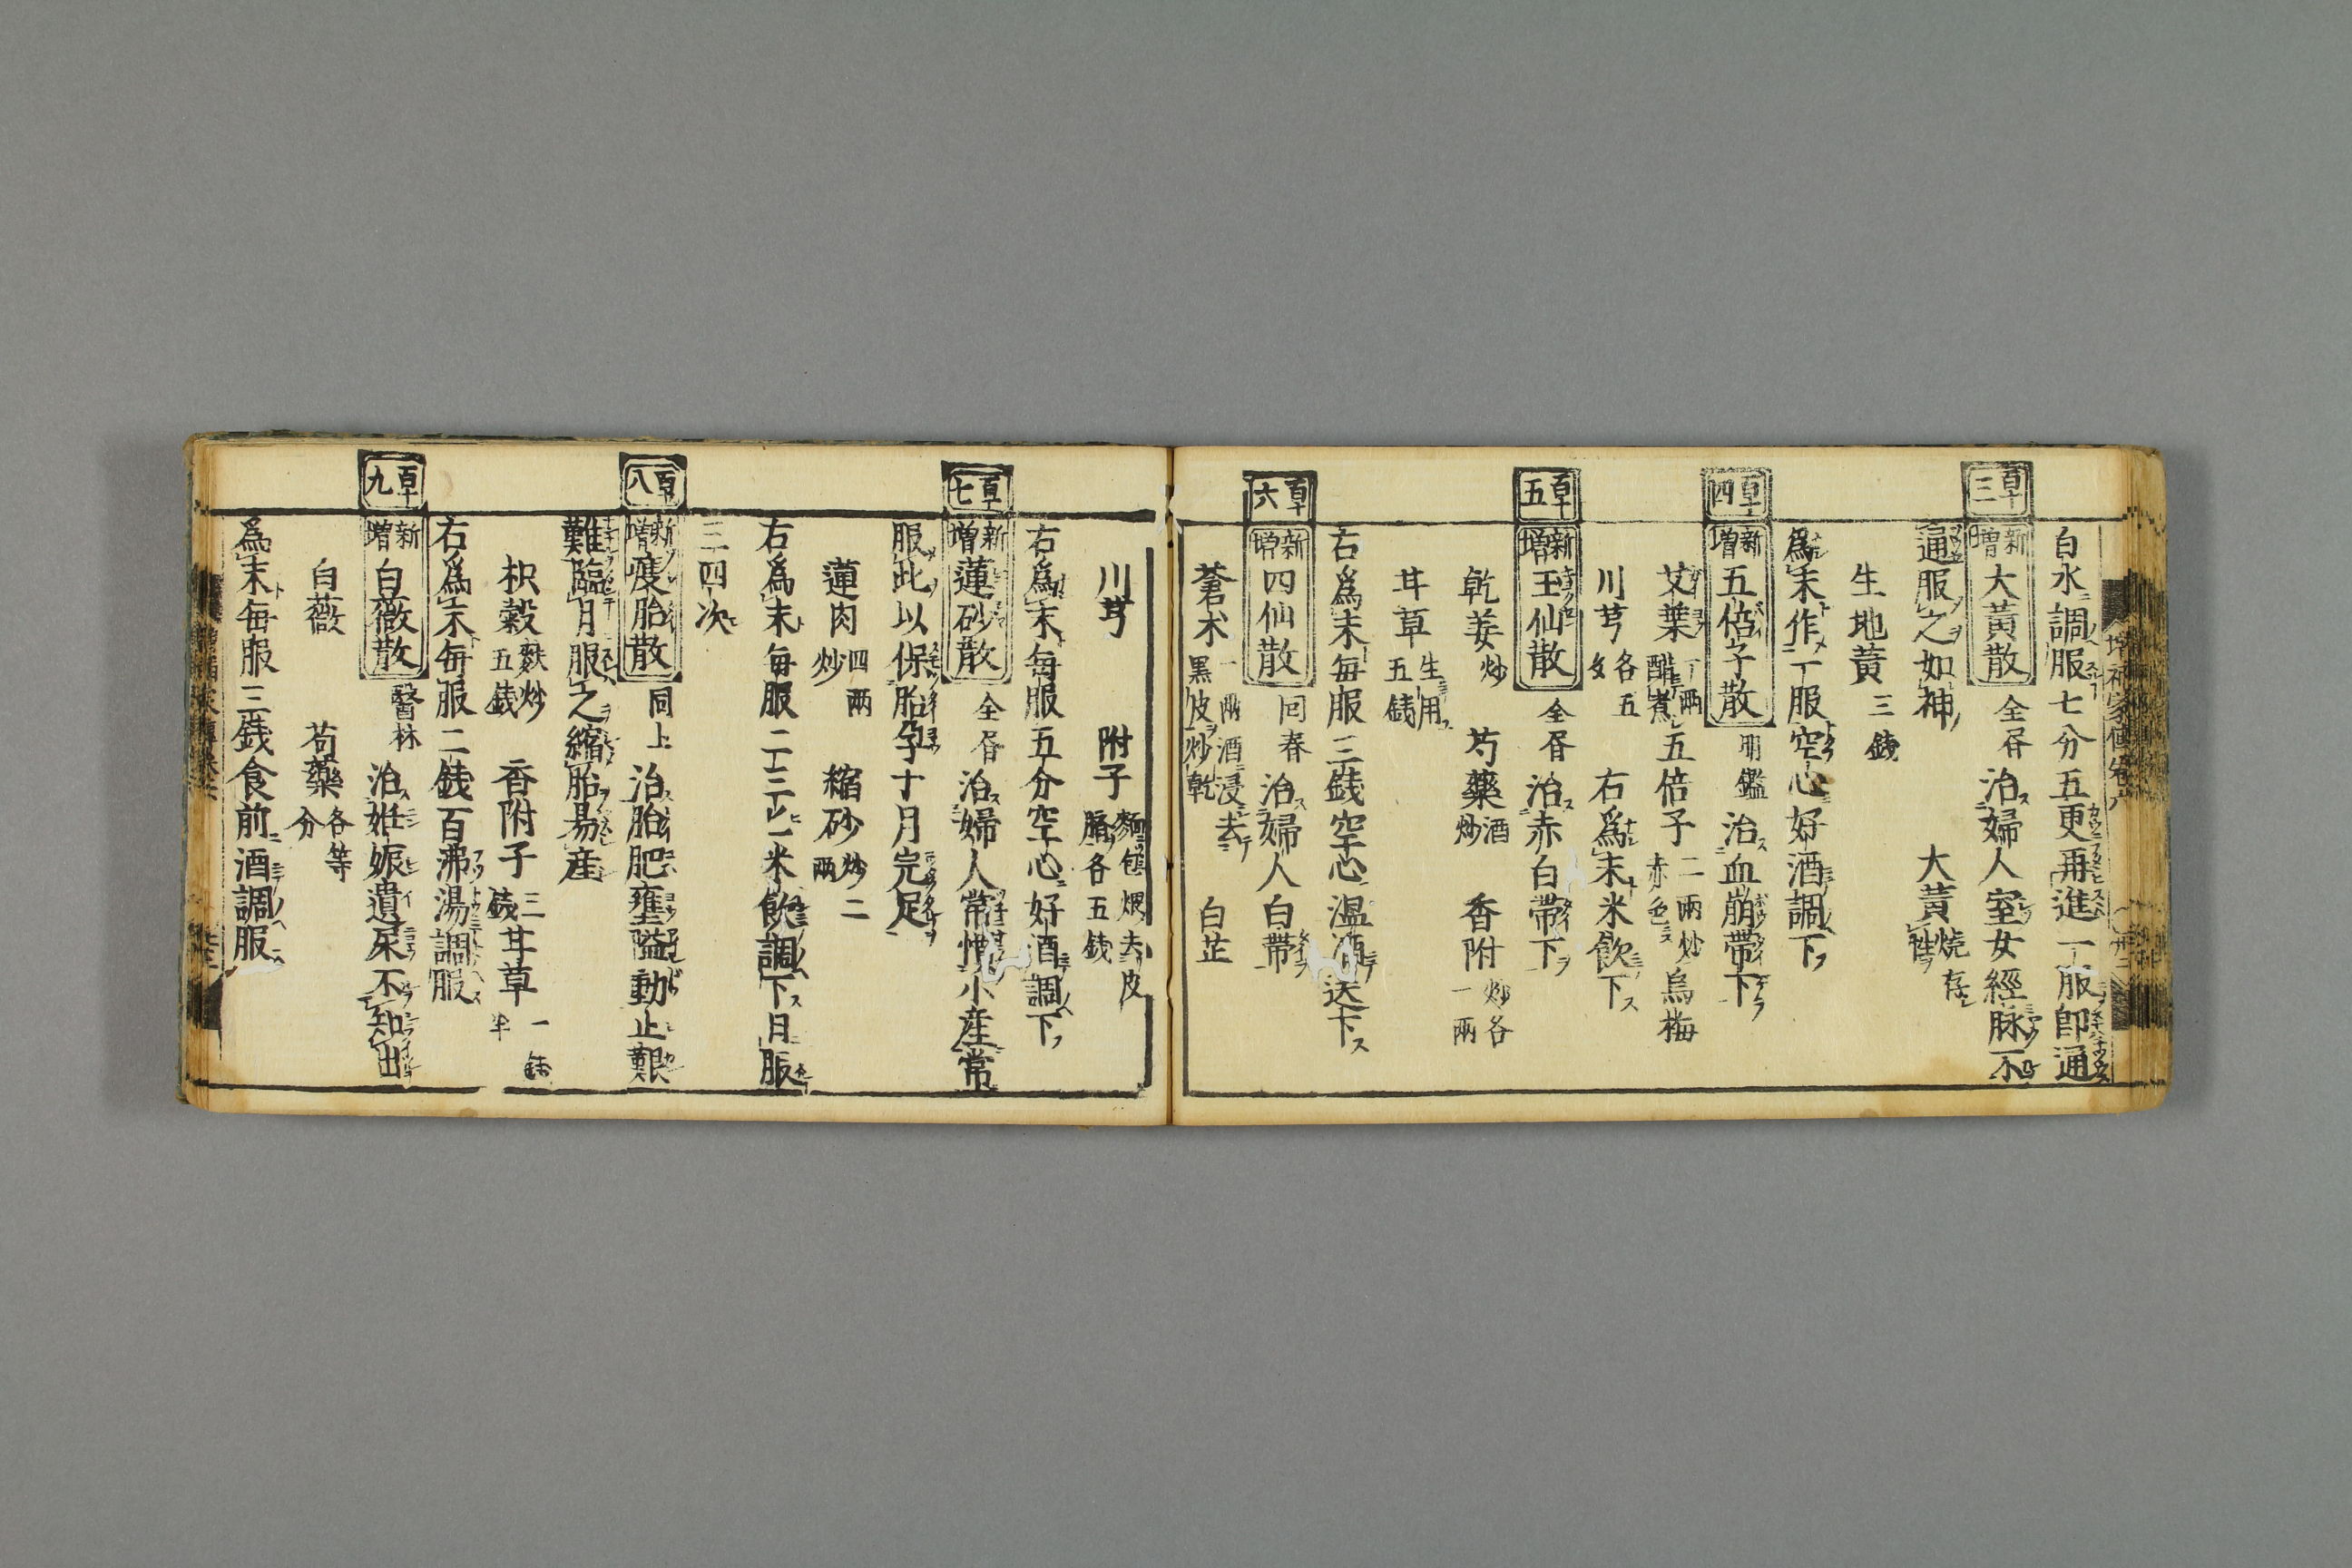 白水調服七分五更再進一服即通
百十三 新増 大黄散 仝屑 治婦人室女經脉不
通服之如神 大黄 燒存性
生地黄 三錢
爲末作一服空心好酒調下
百十四 新増 五倍子散 明鑑 治血崩帶下
艾葉 一兩醋煮 五倍子 二兩炒赤色 烏梅
川芎 各五 右爲末米飲下
百十五 新増 玉仙散 仝屑 治赤白帶下
乾姜 炒 芍藥 酒炒 香附 炒各一兩
甘草 生用五錢
右爲末毎服三錢空心温酒送下
百十六 新増 四仙散 回春 治婦人白帶
蒼朮 一兩酒浸去黒皮炒乾 白芷
川芎 附子 麵包煨去皮臍各五錢
右爲末毎服五分空心好酒調下
百十七 新増 蓮砂散 仝屑 治婦人常慣小産常
服此以保胎孕十月完足
蓮肉 四兩炒 縮砂 炒二兩
右爲末毎服二三匕米飲調下日服
三四次
百十八 新増 瘦胎散 同上 治胎肥壅隘動止艱
難臨月服之縮胎易産
枳殼 麩炒五錢 香附子 三錢 甘草 一錢半
右爲末毎服二錢百沸湯調服
百十九 新増 白薇散 醫林 治姙娠遺尿不知出
白薇 芍藥 各等分
爲末毎服三錢食前酒調服